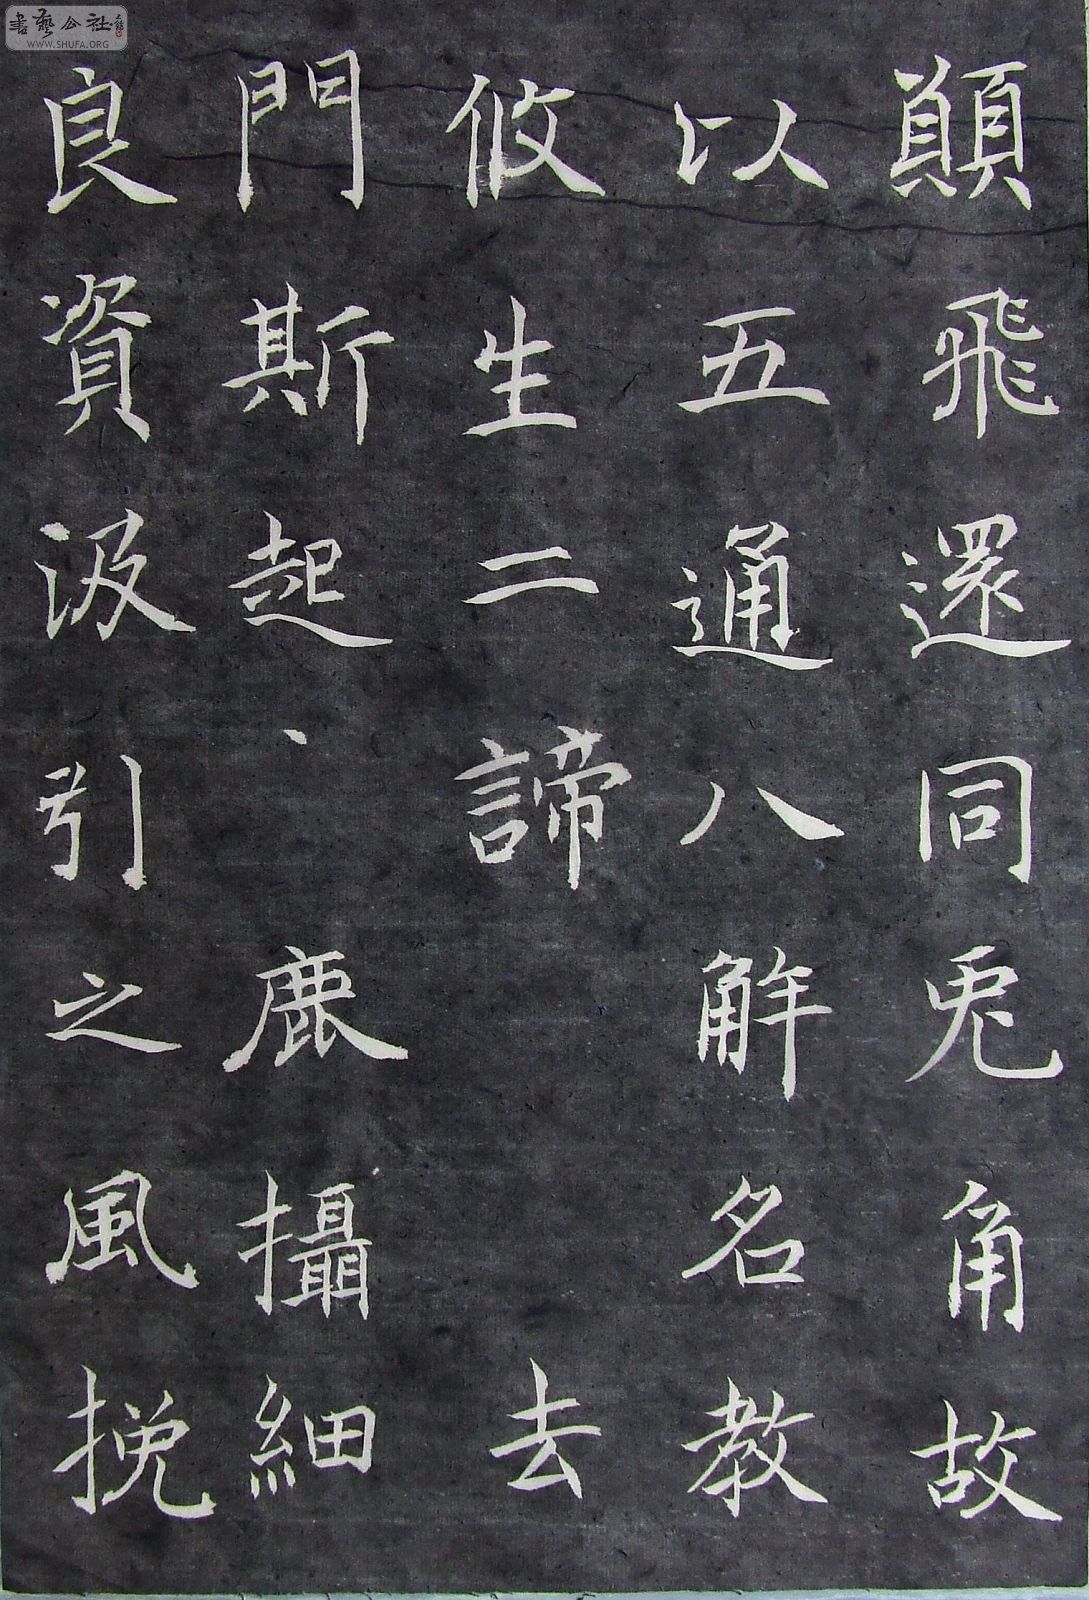 書藝公社
WWW.SHUFA.ORG
顛飛還同兎角故
以五通八解名教
攸生二諦去
門斯起鹿攝細
良資汲引之風挽